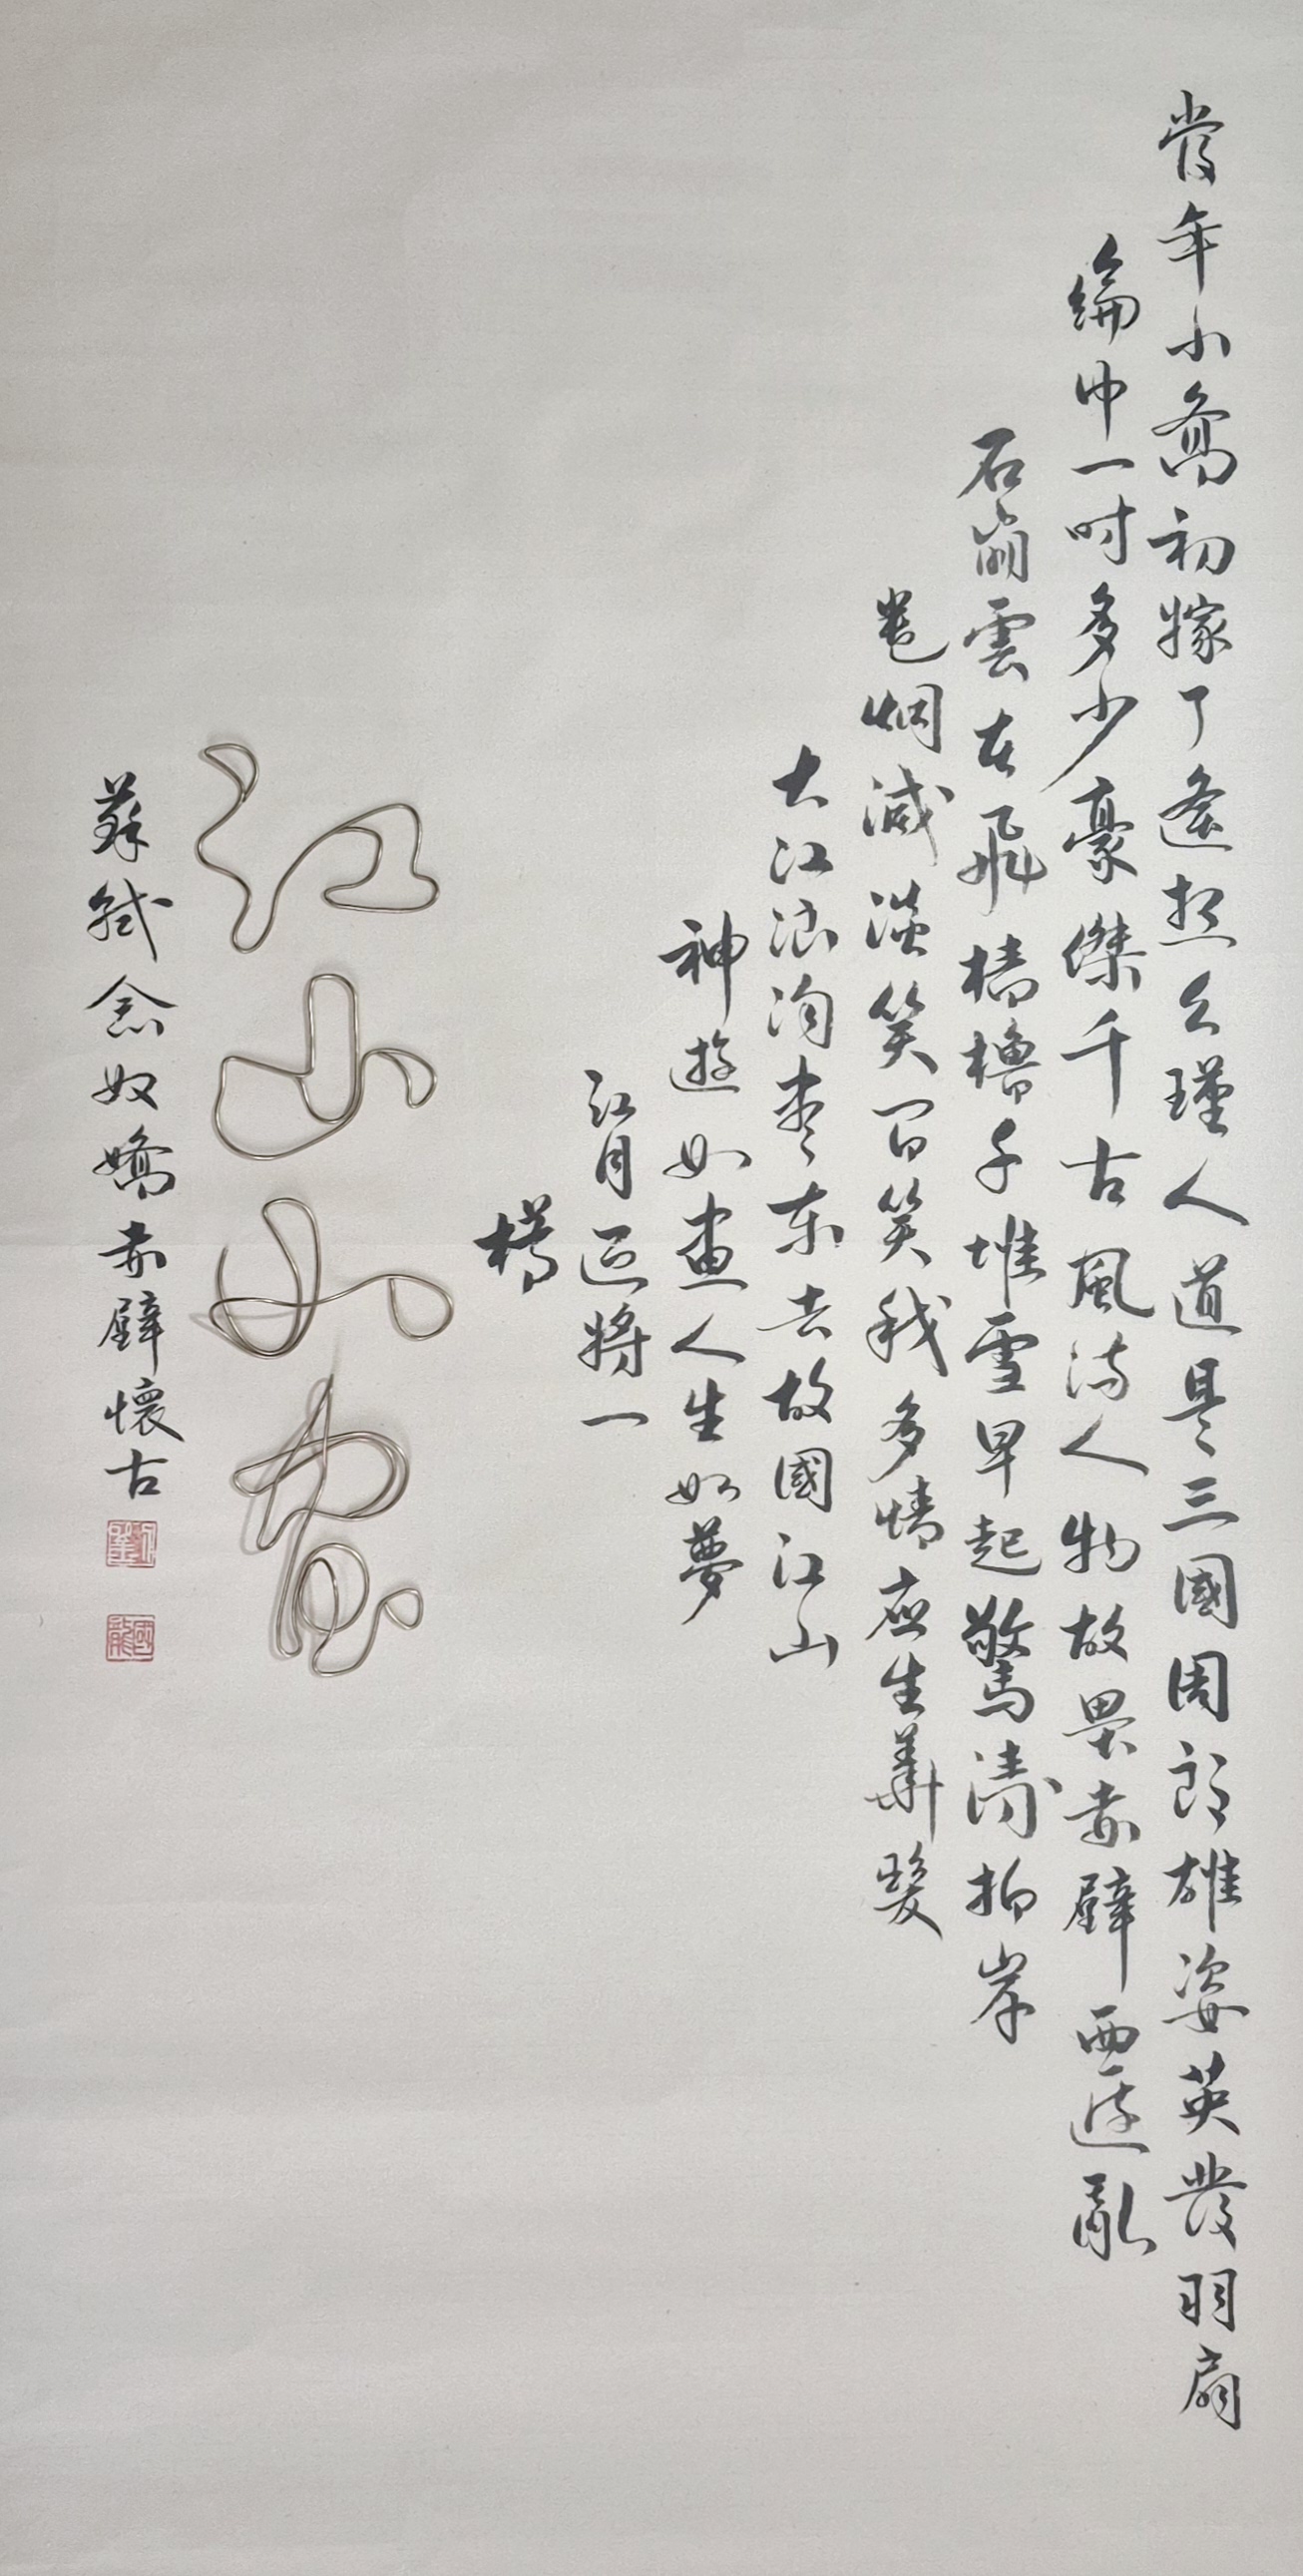 當年小喬初嫁了遙想公瑾人道是三國周郎雄姿英發羽扇
綸巾一時多少豪傑千古風流人物故壘赤壁西邊亂
石崩雲灰飛檣櫓千堆雪早起驚濤拍岸
卷烟滅談笑間笑我多情應生華髮
大江浪淘盡東去故國江山
神遊如畫人生如夢
江月還酹一
樽
江山如畫
蘇軾念奴嬌赤壁懷古